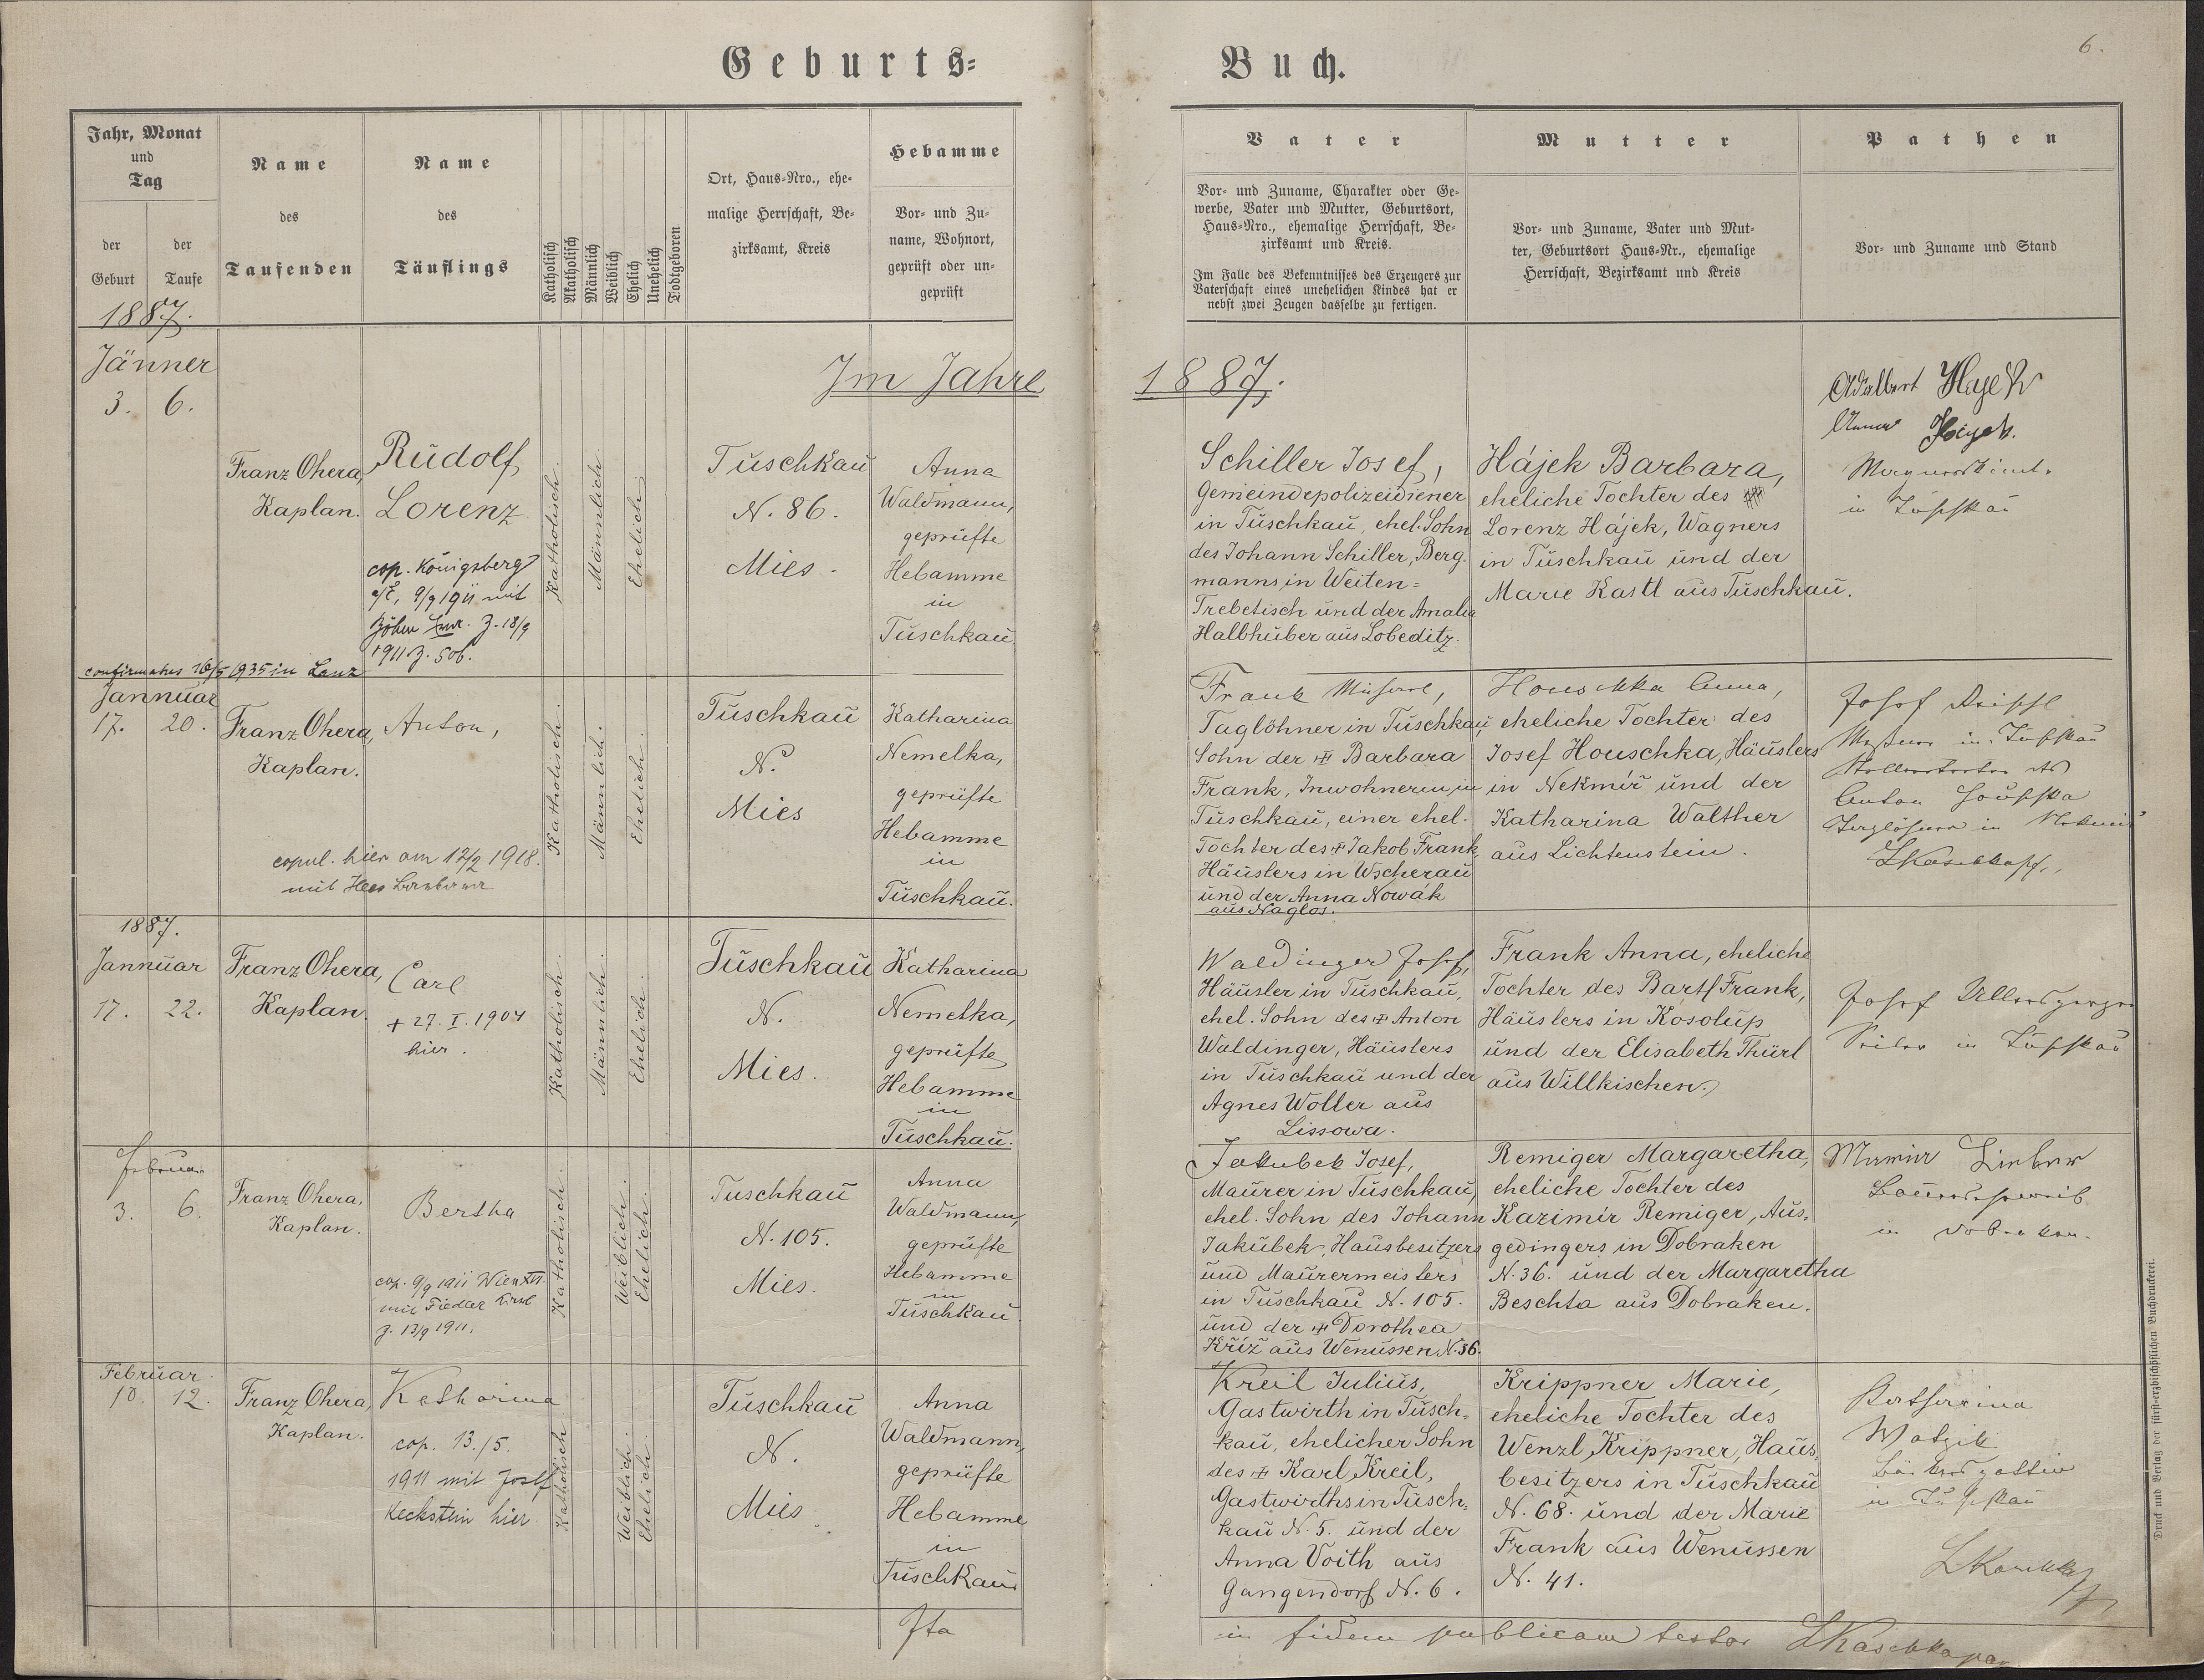 Geburts=
Buch.
6.
Jahr, Monat
und
Tag
der
Geburt
der
Taufe
Name
des
Taufenden
Name
des
Täuflings
Katholisch
Akatholisch
Männlich
Weiblich
Ehelich
Unehelich
Todtgeboren
Ort, Haus-Nro., ehe-
malige Herrschaft, Be-
zirksamt, Kreis
Hebamme
Vor- und Zu-
name, Wohnort,
geprüft oder un-
geprüft
Vater
Vor- und Zuname, Charakter oder Ge-
werbe, Vater und Mutter, Geburtsort,
Haus-Nro., ehemalige Herrschaft, Be-
zirksamt und Kreis.
Im Falle des Bekenntnisses des Erzeugers zur
Vaterschaft eines unehelichen Kindes hat er
nebst zwei Zeugen dasselbe zu fertigen.
Mutter
Vor- und Zuname, Vater und Mut-
ter, Geburtsort Haus-Nr., ehemalige
Herrschaft, Bezirksamt und Kreis
Pathen
Vor- und Zuname und Stand
1887.
Im Jahre
1887.
Jänner
3. 6.
Franz Ohera,
Kaplan.
Rudolf
Lorenz
cop. Königsberg
a/E, 9/9 1911 mit
Z. 18/9
1911 Z. 506.
confirmatus 16/5 1935 in Lanz
Katholisch.
Männlich.
Ehelich.
Tuschkau
N. 86.
Mies.
Anna
Waldmann,
geprüfte
Hebamme
in
Tuschkau.
Schiller Josef,
Gemeindepolizeidiener
in Tuschkau, ehel. Sohn
des Johann Schiller, Berg-
manns in Weiten=
Trebetisch und der Amalia
Halbhuber aus Lobeditz.
Hájek Barbara,
eheliche Tochter des
Lorenz Hájek, Wagners
in Tuschkau und der
Marie Kastl aus Tuschkau.
Adalbert Hajek
Hajek.
in Tuschkau
Jannuar
17. 20.
Franz Ohera,
Kaplan.
Anton,
copul. hier am 12/2 1918.
mit
Katholisch.
Männlich.
Ehelich.
Tuschkau
N.
Mies
Katharina
Nemelka,
geprüfte
Hebamme
in
Tuschkau.
Frank
Taglöhner in Tuschkau,
Sohn der ✠ Barbara
Frank, Inwohnerin in
Tuschkau, einer ehel.
Tochter des ✠ Jakob Frank,
Häuslers in Wscherau
und der Anna Nowák
aus Naglos.
Houschka Anna,
eheliche Tochter des
Josef Houschka, Häuslers
in Nekmíř und der
Katharina Walther
aus Lichtenstein.
Josef
in Tuschkau
Anton
in
1887.
Jannuar
17. 22.
Franz Ohera,
Kaplan.
Carl
+ 27. I. 1904
hier.
Katholisch.
Männlich.
Ehelich.
Tuschkau
N.
Mies.
Katharina
Nemelka,
geprüfte
Hebamme
in
Tuschkau.
Waldinger Josef,
Häusler in Tuschkau,
ehel. Sohn des ✠ Anton
Waldinger, Häuslers
in Tuschkau und der
Agnes Woller aus
Lissowa.
Frank Anna, eheliche
Tochter des Bartl Frank,
Häuslers in Kosolup
und der Elisabeth Thürl
aus Willkischen.
Josef
in Tuschkau
Februar
3. 6.
Franz Ohera,
Kaplan.
Bertha
cop. 9/9 1911 Wien
mit Fiedler
Z. 13/9 1911.
Katholisch.
Weiblich.
Ehelich.
Tuschkau
N. 105.
Mies.
Anna
Waldmann,
geprüfte
Hebamme
in
Tuschkau.
Jakubek Josef,
Maurer in Tuschkau,
ehel. Sohn des Johann
Jakubek, Hausbesitzers
und Maurermeisters
in Tuschkau N. 105.
und der ✠ Dorothea
Křiž aus Wenussen N. 36.
Remiger Margaretha,
eheliche Tochter des
Kazimír Remiger, Aus-
gedingers in Dobraken
N. 36. und der Margaretha
Beschta aus Dobraken.
in Dobraken.
Februar.
10. 12.
Franz Ohera,
Kaplan.
Katharina
cop. 13./5.
1911 mit Josef
Keckstein hier
Katholisch
Weiblich.
Ehelich.
Tuschkau
N.
Mies.
Anna
Waldmann,
geprüfte
Hebamme
in
Tuschkau
Kreil Julius,
Gastwirth in Tusch-
kau, ehelicher Sohn
des ✠ Karl Kreil,
Gastwirths in Tusch-
kau N. 5. und der
Anna Voith aus
Gangendorf N. 6.
Krippner Marie,
eheliche Tochter des
Wenzl Krippner, Haus-
besitzers in Tuschkau
N. 68. und der Marie
Frank aus Wenussen
N. 41.
Katharina
in Tuschkau
Ita
in fidem publicam testor
Druck und Verlag der fürst-erzbischöflichen Buchdruckerei.